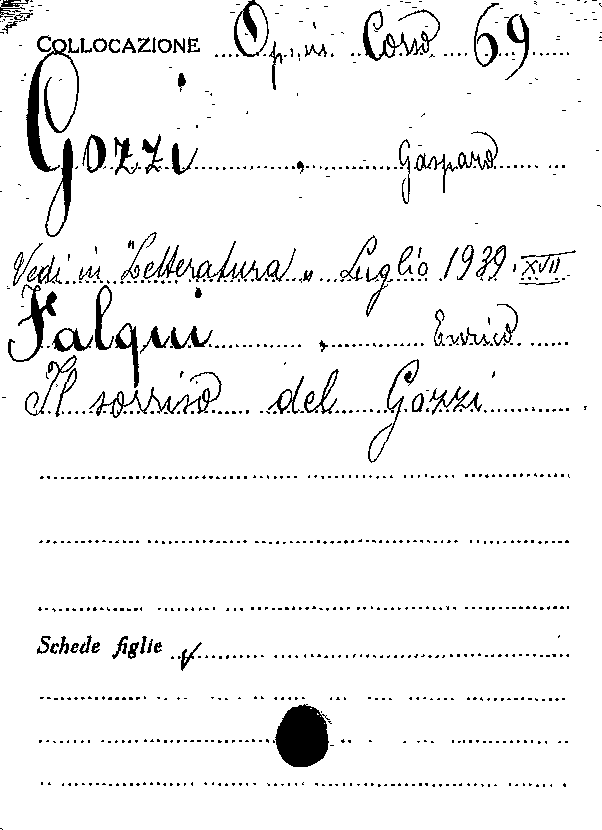 COLLOCAZIONE Op. in Corso 69
Gozzi , Gasparo
Vedi in "Letteratura" Luglio 1939. XVII
Falqui , Enrico
Il sorriso del Gozzi
Schede figlie